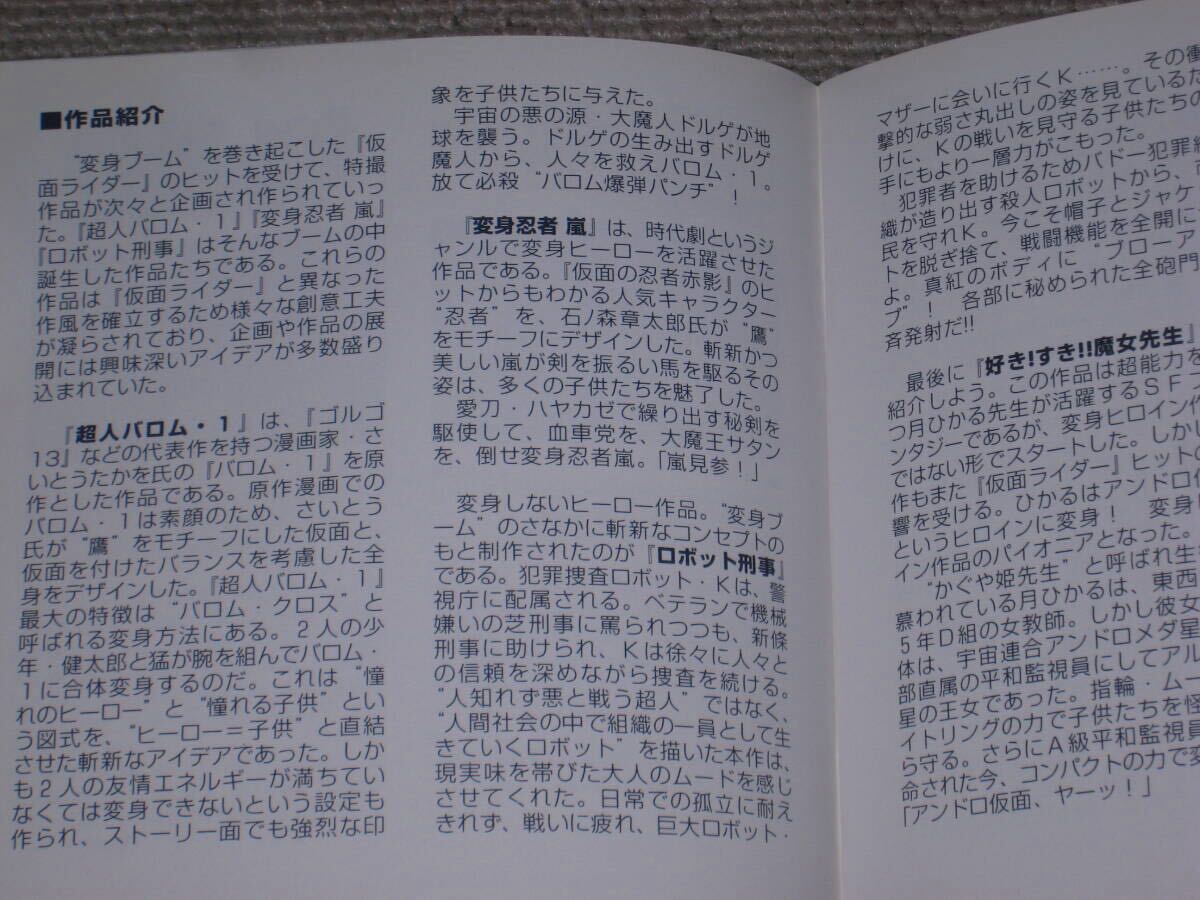 ■作品紹介
“変身ブーム”を巻き起こした『仮
面ライダー』のヒットを受けて、特撮
作品が次々と企画され作られていっ
た。『超人バロム・1』『変身忍者 嵐』
『ロボット刑事』はそんなブームの中
誕生した作品たちである。これらの
作品は『仮面ライダー』と異なった
作風を確立するため様々な創意工夫
が凝らされており、企画や作品の展
開には興味深いアイデアが多数盛り
込まれていた。
『超人バロム・1』は、『ゴルゴ
13』などの代表作を持つ漫画家・さ
いとうたかを氏の『バロム・1』を原
作とした作品である。原作漫画での
バロム・1は素顔のため、さいとう
氏が“鷹”をモチーフにした仮面と、
仮面を付けたバランスを考慮した全
身をデザインした。『超人バロム・1』
最大の特徴は“バロム・クロス”と
呼ばれる変身方法にある。2人の少
年・健太郎と猛が腕を組んでバロム・
1に合体変身するのだ。これは“憧
れのヒーロー”と“憧れる子供”とい
う図式を、“ヒーロー＝子供”と直結
させた斬新なアイデアであった。しか
も2人の友情エネルギーが満ちてい
なくては変身できないという設定も
作られ、ストーリー面でも強烈な印
象を子供たちに与えた。
宇宙の悪の源・大魔人ドルゲが地
球を襲う。ドルゲの生み出すドルゲ
魔人から、人々を救えバロム・1。
放て必殺“バロム爆弾パンチ”！
『変身忍者 嵐』は、時代劇というジ
ャンルで変身ヒーローを活躍させた
作品である。『仮面の忍者赤影』のヒ
ットからもわかる人気キャラクター
“忍者”を、石ノ森章太郎氏が“鷹”
をモチーフにデザインした。斬新かつ
美しい嵐が剣を振るい馬を駆るその
姿は、多くの子供たちを魅了した。
愛刀・ハヤカゼで繰り出す秘剣を
駆使して、血車党を、大魔王サタン
を、倒せ変身忍者嵐。「嵐見参！」
変身しないヒーロー作品。“変身ブ
ーム”のさなかに斬新なコンセプトの
もと制作されたのが『ロボット刑事』
である。犯罪捜査ロボット・Kは、警
視庁に配属される。ベテランで機械
嫌いの芝刑事に罵られつつも、新條
刑事に助けられ、Kは徐々に人々と
の信頼を深めながら捜査を続ける。
“人知れず悪と戦う超人”ではなく、
“人間社会の中で組織の一員として生
きていくロボット”を描いた本作は、
現実味を帯びた大人のムードを感じ
させてくれた。日常での孤立に耐え
きれず、戦いに疲れ、巨大ロボット・
マザーに会いに行くK……。その衝
撃的な弱さ丸出しの姿を見ているだ
けに、Kの戦いを見守る子供たちの
手にもより一層力がこもった。
犯罪者を助けるためバドー犯罪組
織が造り出す殺人ロボットから、
民を守れK。今こそ帽子とジャケ
トを脱ぎ捨て、戦闘機能を全開に
よ。真紅のボディに“ブローア
プ”！ 各部に秘められた全砲門
斉発射だ!!
最後に『好き！すき!!魔女先生』
紹介しよう。この作品は超能力を
つ月ひかる先生が活躍するSF
ンタジーであるが、変身ヒロイン作
ではない形でスタートした。しかし
作もまた『仮面ライダー』ヒットの
響を受ける。ひかるはアンドロ
というヒロインに変身！ 変身
イン作品のパイオニアとなった。
“かぐや姫先生”と呼ばれ生
慕われている月ひかるは、東西
5年D組の女教師。しかし彼女
体は、宇宙連合アンドロメダ星
部直属の平和監視員にしてアル
星の王女であった。指輪・ムー
イトリングの力で子供たちを怪
ら守る。さらにA級平和監視員
命された今、コンパクトの力で変
「アンドロ仮面、ヤーッ！」